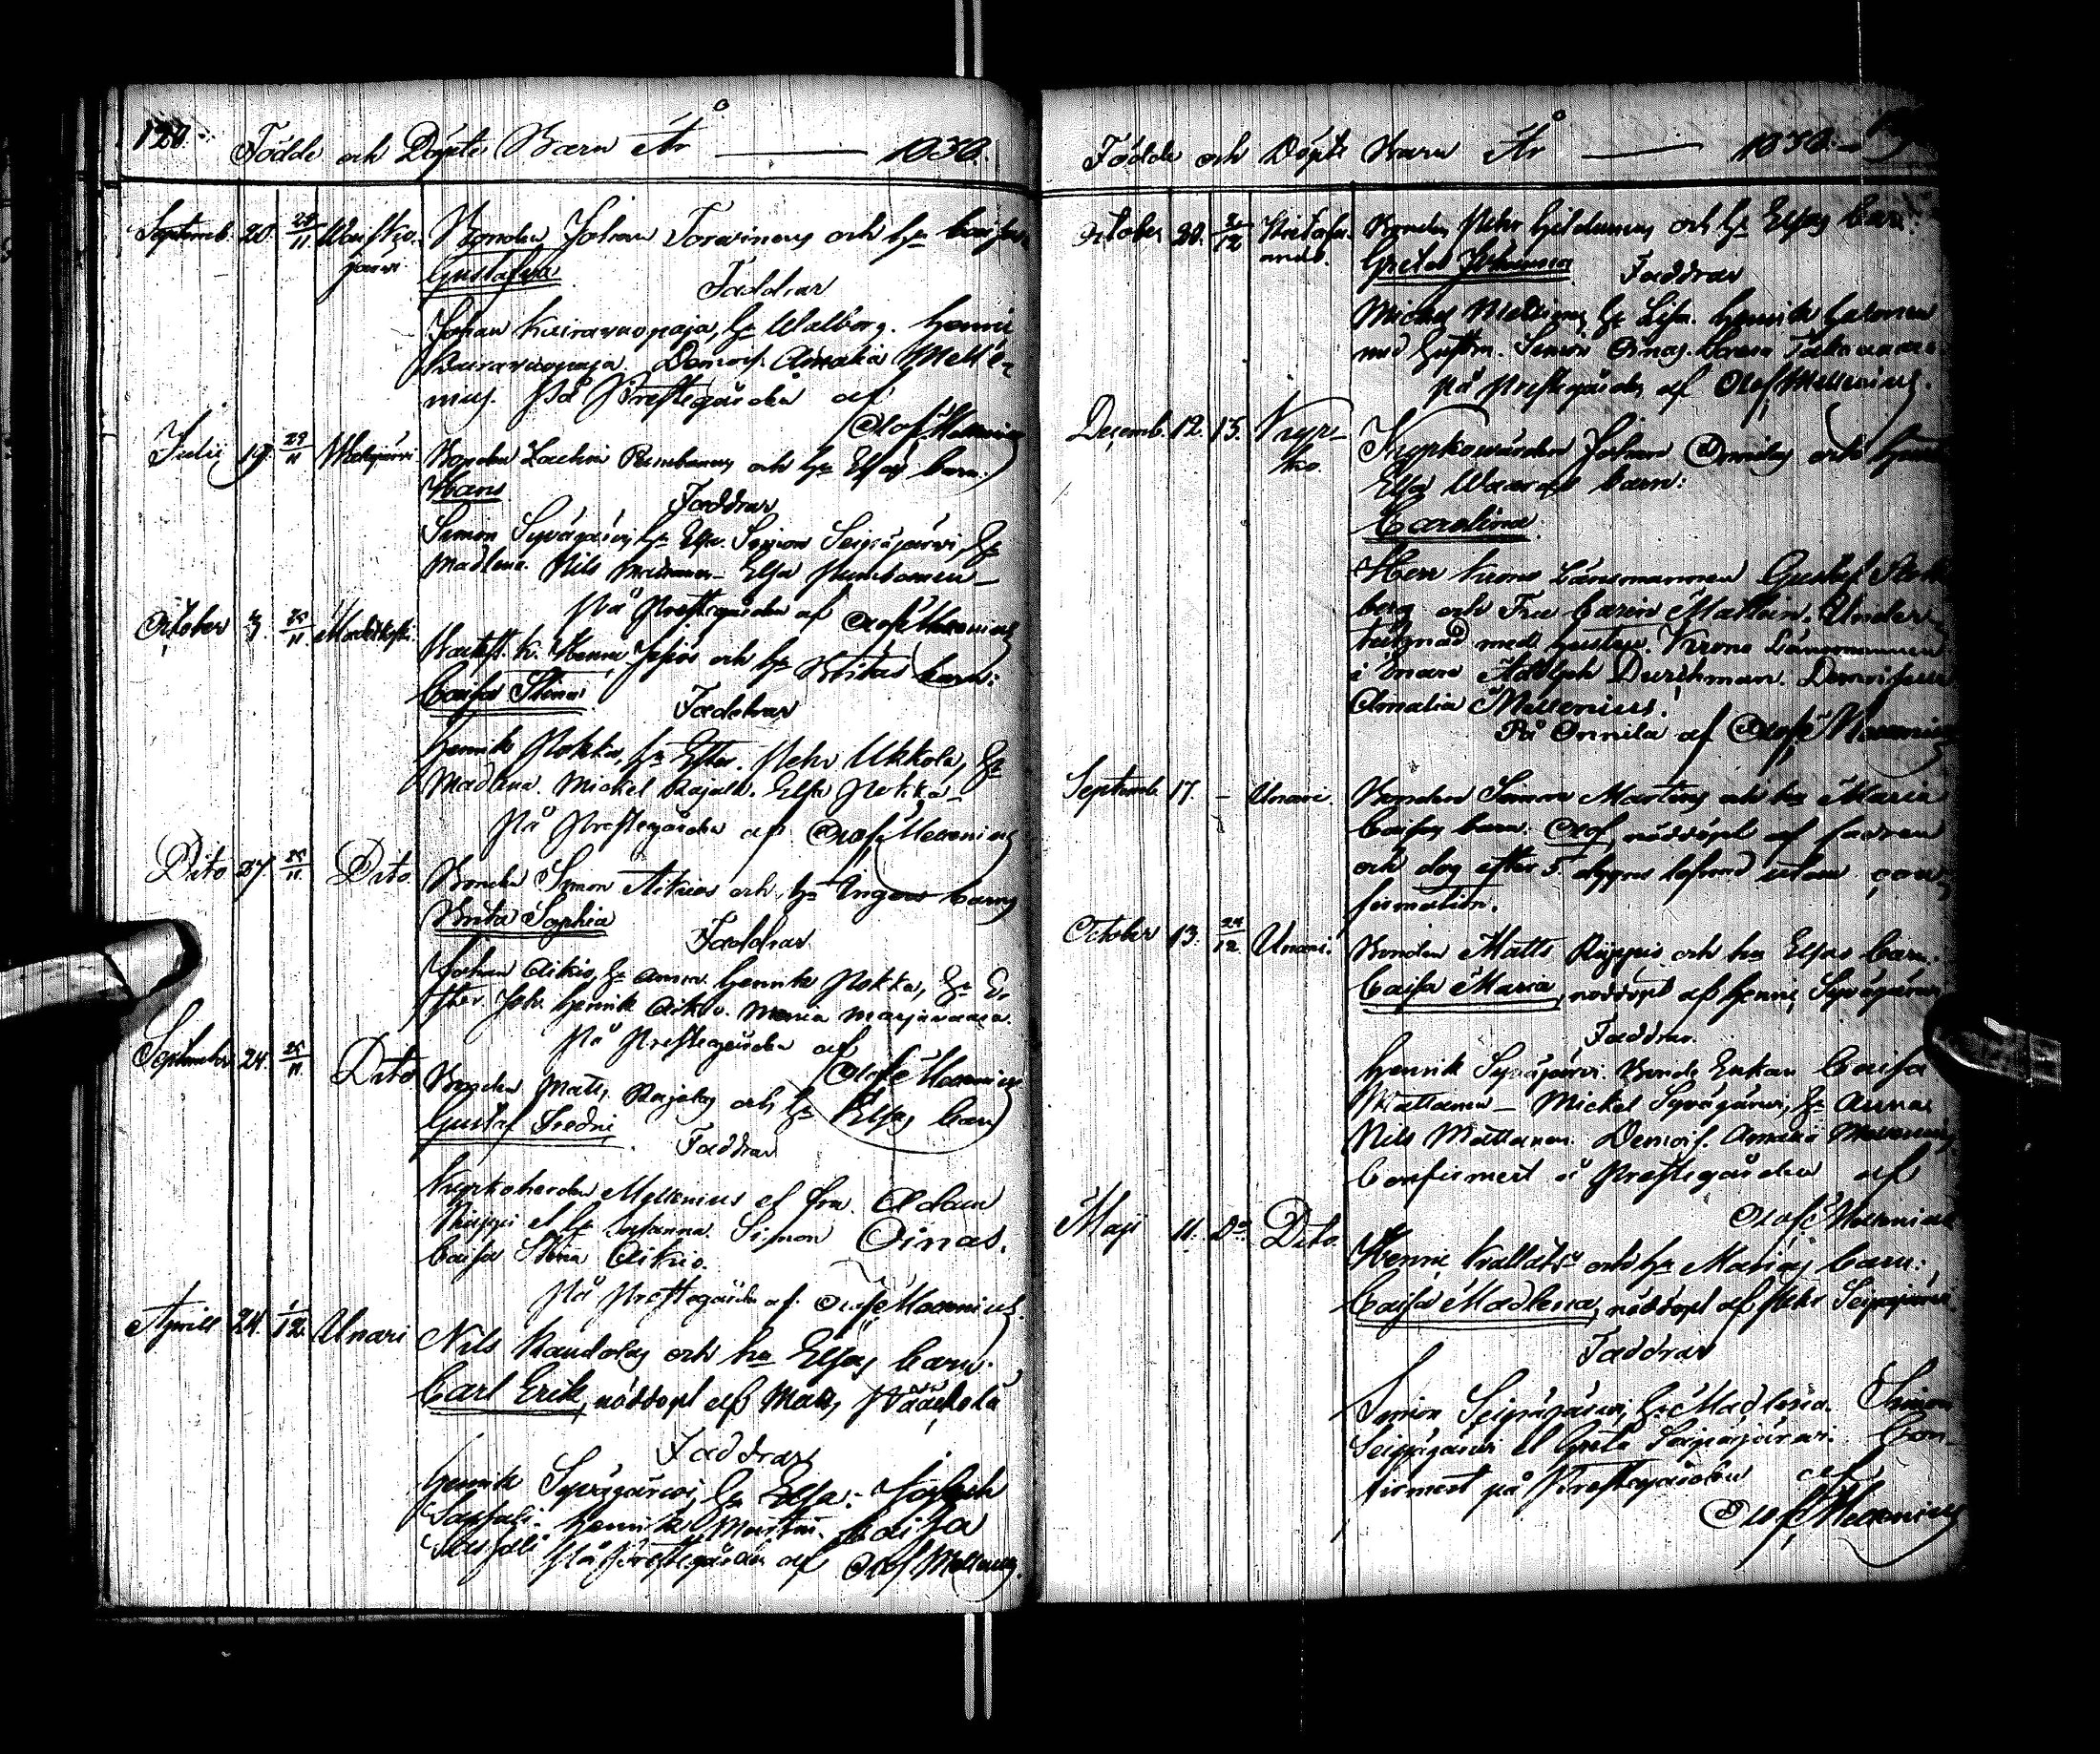 120.
Födde och Döpte Barn År — 1838.
Septemb. 20. 24/11
Bonden Johan Torvinens och h:u Caisas
Gustafva
Faddrar
Johan Kuiravuopaja, h:u Walborg. Henric
Kuiravuopaja. Demois. Amalia Melle-
nius. På Prestegården af
Olof Mellenius
Julii 19. 29/11
Bonden Zachris och h:u Elsas barn:
Hans
Faddrar
Simon Syväjärvi, h:u Elsa. Simon Seipäjärvi, h:u
Madlena. Nils Elsa
På Prestegården af Olof Mellenius
October 25/11
Henric och h:u Britas barn:
Caisa Stina
Faddrar
Henrik Pokka, h:u Ester. Pehr Ukkola, h:u
Madlena. Mickel Rajala. Elsa Pokka
På Prestegården af Olof Mellenius
Dito 27. 25/11 Dito
Bonden Simon Aikios och h:u Ingas barn
Brita Sophia
Faddrar
Johan Aikio, h:u Anna. Henrik Pokka, h:u E-
ster. Joh. Henrik Aikio. Maria Marjavaara.
På Prestegården af
Olof Mellenius
September 24. 25/11 Dito
Bonden Matts Rajalas och h:u Elsas barn
Gustaf Fredric
Faddrar
Kyrkoherden Mellenius et fru. Adam
Riippi et h:u Susanna. Simon Oinas.
Caisa Stina Aikio.
På Prestegården af Olof Mellenius
Aprill 24. 1/12 Unari
Nils Kaudolas och h:u Elsas barn.
Carl Erik, nöddöpt af Matts
Faddrar
Henrik Syväjärvi, h:u Elsa.
Sassali. Henrik Martin. Caisa
Sassali. På Prestegården af Olof Mellenius.
Födde och Döpte Barn År — 1838.
October 20. 2/12
Bonden Pehr och h:u Elsas barn:
Greta Johanna
Faddrar
Mickel h:u Lisa. Henrik
med hustru. Simon Oinas.
På Prestegården af Olof Mellenius.
Decemb. 12. 13. Kyr-
ko.
Kyrkovärden Johan Onnilas och hustru
Elsa barn:
Carolina
Herr Krono Länsmannen Gustaf
berg och Fru Carin Under-
tecknad med hustru. Krono Länsmannen
i Enare Adolph Durchman.
Amalia Mellenius.
På Onnila af Olof Mellenius
Septemb. 17. - Unari.
Bonden Simon Martins och h:u Maria
Caisas barn. Olof, nöddöpt af fadren
och dog efter 5 dygns lefnad utan con-
firmation.
October 13. 24/12 Unari.
Bonden Matts Riippis och h:u Elsas barn.
Caisa Maria, nöddöpt af Henric Syväjärvi
Faddrar.
Henrik Syväjärvi. Bonde Enkan Caisa
Mattanen — Mickel Syväjärvi, h:u Anna
Nils Mattanen. Demois. Amalia Mellenius
Confirmert å Prestegården af
Olof Mellenius
Maji 11. D:o Dito
Henric och h:u Marias barn:
Caisa Madlena, nöddöpt af Pehr Seipäjärvi.
Faddrar
Simon Seipäjärvi, h:u Madlena. Simon
Seipäjärvi et Greta Seipäjärvi. Con-
firmert på Prestegården af
Olof Mellenius